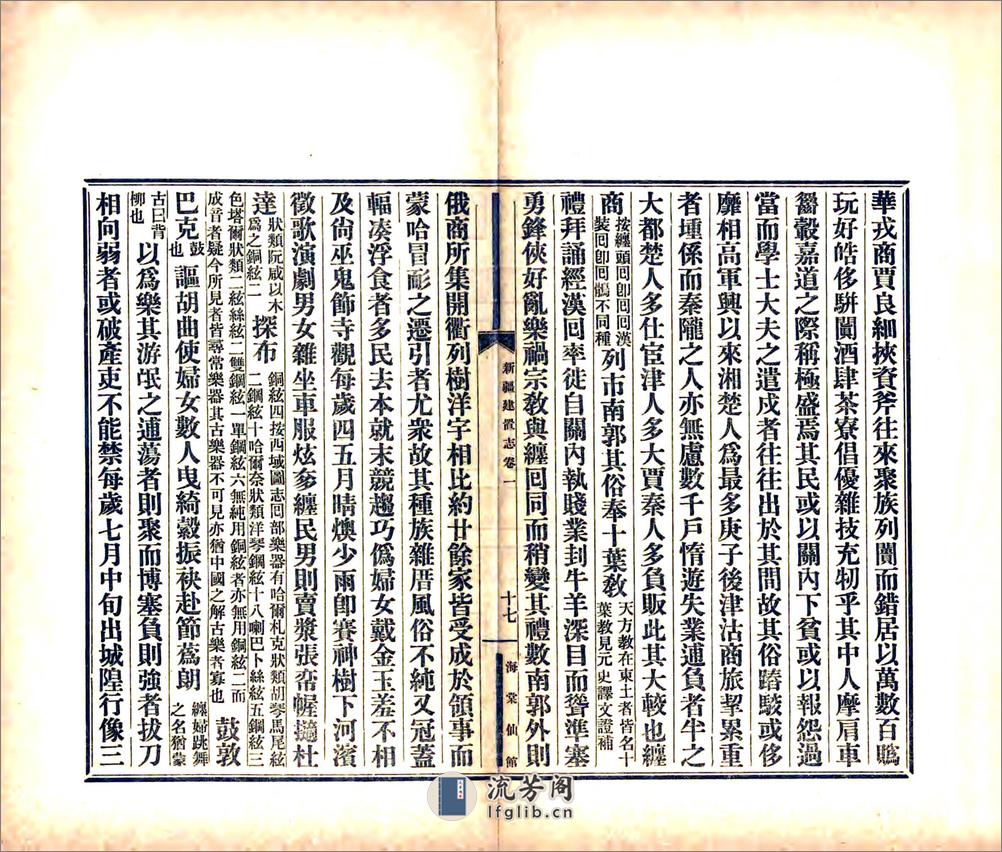 華戎商賈良細挾資斧往來聚族列闤而錯居以萬數百
玩好皓侈駢闐酒肆茶寮倡優雜技充牣乎其中人摩肩車
轂嘉道之際稱極盛焉其民或以關內下貧或以報怨過
當而學士大夫之遣戍者往往出於其間故其俗踳駮或侈
靡相高軍興以來湘楚人爲最多庚子後津沽商旅絜累重
者堹係而秦隴之人亦無慮數千戶惰遊失業逋負者半之
大都楚人多仕宦津人多大賈秦人多負販此其大較也纏
商按纏頭回卽回回漢裝回卽回鶻不同種列市南郭其俗奉十葉教天方教在東土者皆名十葉教見元史譯文證補
禮拜誦經漢回率徒自關內執賤業封牛羊深目而聳準塞
勇鋒俠好亂樂禍宗教與纏回同而稍變其禮數南郭外則
新疆建置志卷一
十七
海棠仙館
俄商所集開衢列樹洋字相比約廿餘家皆受成於領事而
蒙哈冒耏之遷引者尤衆故其種族雜厝風俗不純又冠蓋
輻湊浮食者多民去本就末競趨巧僞婦女戴金玉羞不相
及尙巫鬼飾寺觀每歲四五月晴燠少雨卽賽神樹下河濱
徵歌演劇男女雜坐車服炫奓纏民男則賣漿張帟幄擿杜
達狀類阮咸以木爲之銅絃二探布銅絃四按西域圖志回部樂器有哈爾札克狀類胡琴馬尾絃二鋼絃十哈爾奈狀類洋琴鋼絃十八喇巴卜絲絃五鋼絃三
色塔爾狀類二絃絲絃二雙鋼絃一單鋼絃六無純用銅絃者亦無用銅絃二而成音者疑今所見者皆尋常樂器其古樂器不可見亦猶中國之解古樂者寡也鼓敦
巴克鼓也謳胡曲使婦女數人曳綺縠振袂赴節蔿朗纏婦跳舞之名猶蒙
古曰背柳也以爲樂其游氓之逋蕩者則聚而博塞負則強者拔刀
相向弱者或破產吏不能禁每歲七月中旬出城隍行像三
流芳阁
lfglib.cn